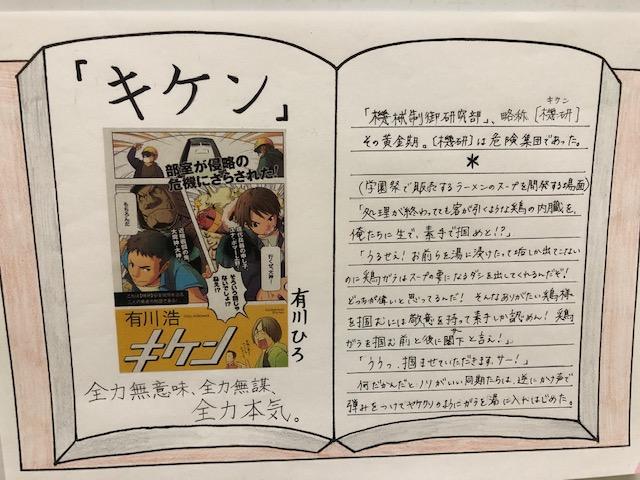 「キケン」
部室が侵略の
危機にさらされた!
もちろんだ
行くぜ、大神!
そういう話じゃ
ないでしょ!?
ねえ!?
有川浩
キケン
有川ひろ
全力無意味、全力無謀、
全力本気。
キケン
「機械制御研究部」、略称【機研】
その黄金期。【機研】は危険集団であった。
*
(学園祭で販売するラーメンのスープを開発する場面)
「処理が終わっても客が引くような鶏の内臓を、
俺たちに生で、素手で掴めと!?」
「うるせえ!お前らを湯に浸けたって垢しか出てこない
のに鶏ガラはスープの素になるダシを出してくれるんだぞ!
どっちが偉いと思ってるんだ!そんなありがたい鶏様
を掴むには敬意を持って素手しか認めん!鶏
サー
ガラを掴む前と後に閣下と言え!」
「ううっ、掴ませていただきます、サー!」
何だかんだとノリがいい同期たちは、逆にかけ声で
弾みをつけてヤケクソのようにガラを湯に入れはじめた。